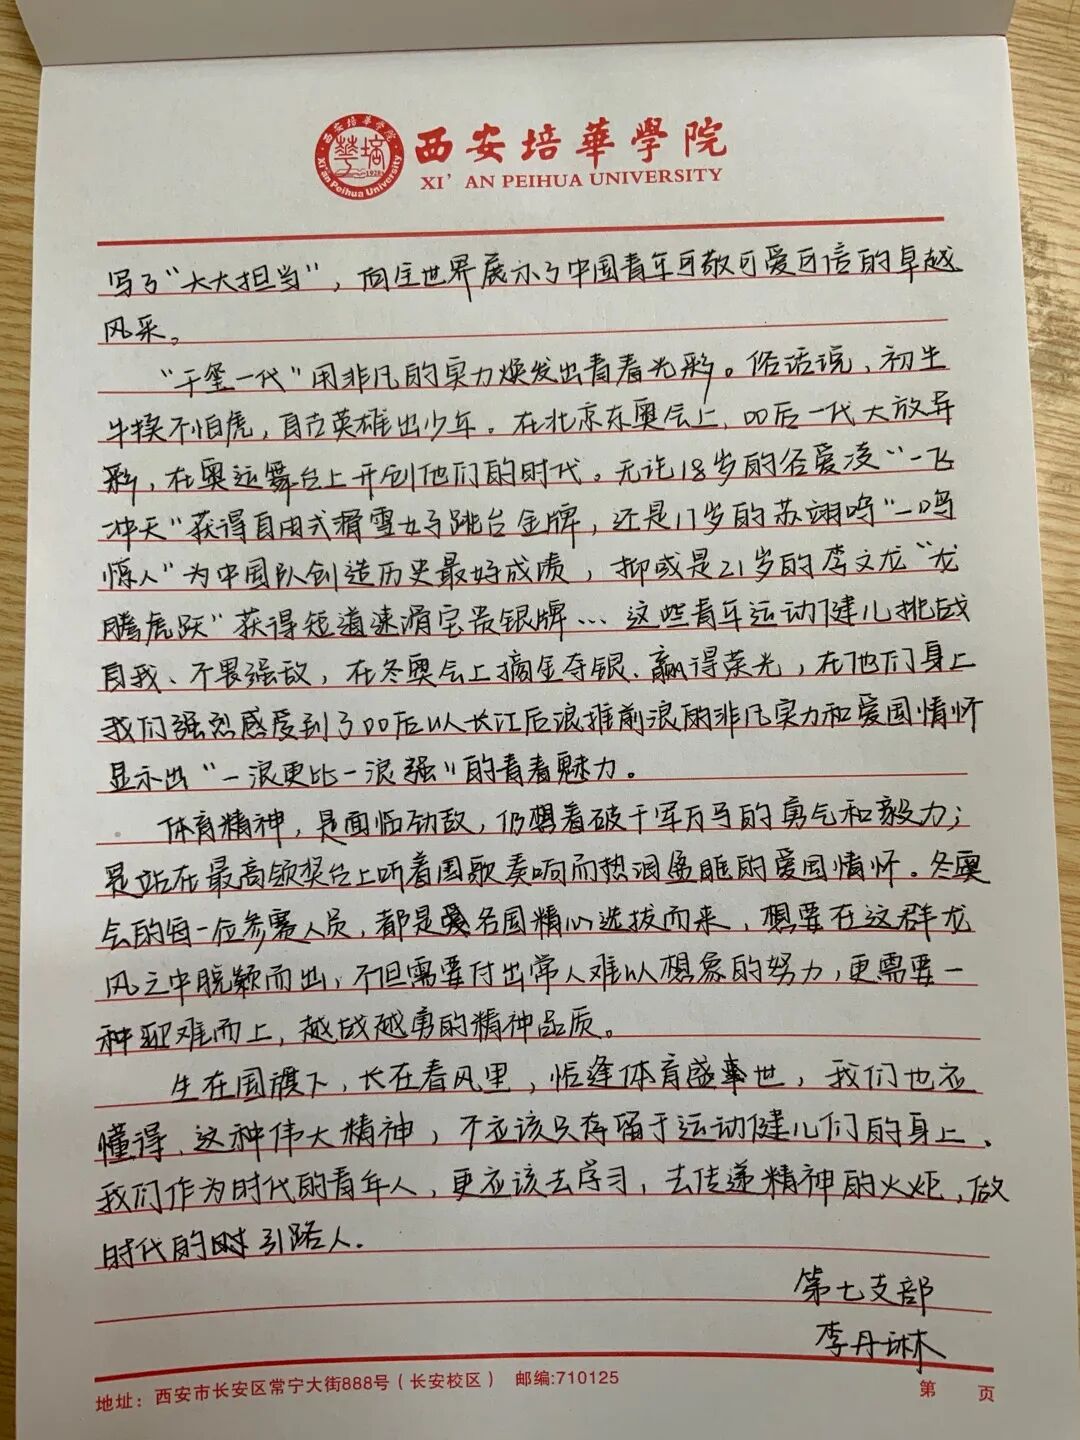 西安培華學院
XI'AN PEIHUA UNIVERSITY
西安培華学院
Xi'an Peihua University
1928
写了“大大担当”，向全世界展示了中国青年可敬可爱可信的卓越
风采。
“千玺一代”用非凡的实力焕发出青春光彩。俗话说、初生
牛犊不怕虎，自古英雄出少年。在北京东奥会上、00后一代大放异
彩，在奥运舞台上开创他们的时代。无论18岁的谷爱凌“一飞
冲天”获得自由式滑雪女子跳台金牌，还是17岁的苏翊鸣“一鸣
惊人”为中国队创造历史最好成绩，抑或是21岁的李文龙“龙
腾虎跃”获得短道速滑宝贵银牌…这些青年运动健儿挑战
自我、不畏强敌，在冬奥会上摘金夺银、赢得荣光，在他们身上
我们强烈感受到了00后以长江后浪推前浪的非凡实力和爱国情怀
显示出“一浪更比一浪强”的青春魅力。
体育精神，是面临劲敌，仍想着破千军万马的勇气和毅力；
是站在最高领奖台上听着国歌奏响而热泪盈眶的爱国情怀。冬奥
会的每一位参赛人员，都是各国精心选拔而来，想要在这群龙
风之中脱颖而出，不但需要付出常人难以想象的努力，更需要一
种迎难而上，越战越勇的精神品质。
生在国旗下，长在春风里，恰逢体育盛世，我们也应
懂得、这种伟大精神，不应该只存留于运动健儿们的身上、
我们作为时代的青年人，更应该去学习，去传递精神的火炬，做
时代的引路人.
第七支部
李丹琳
地址：西安市长安区常宁大街888号（长安校区） 邮编:710125
第 页